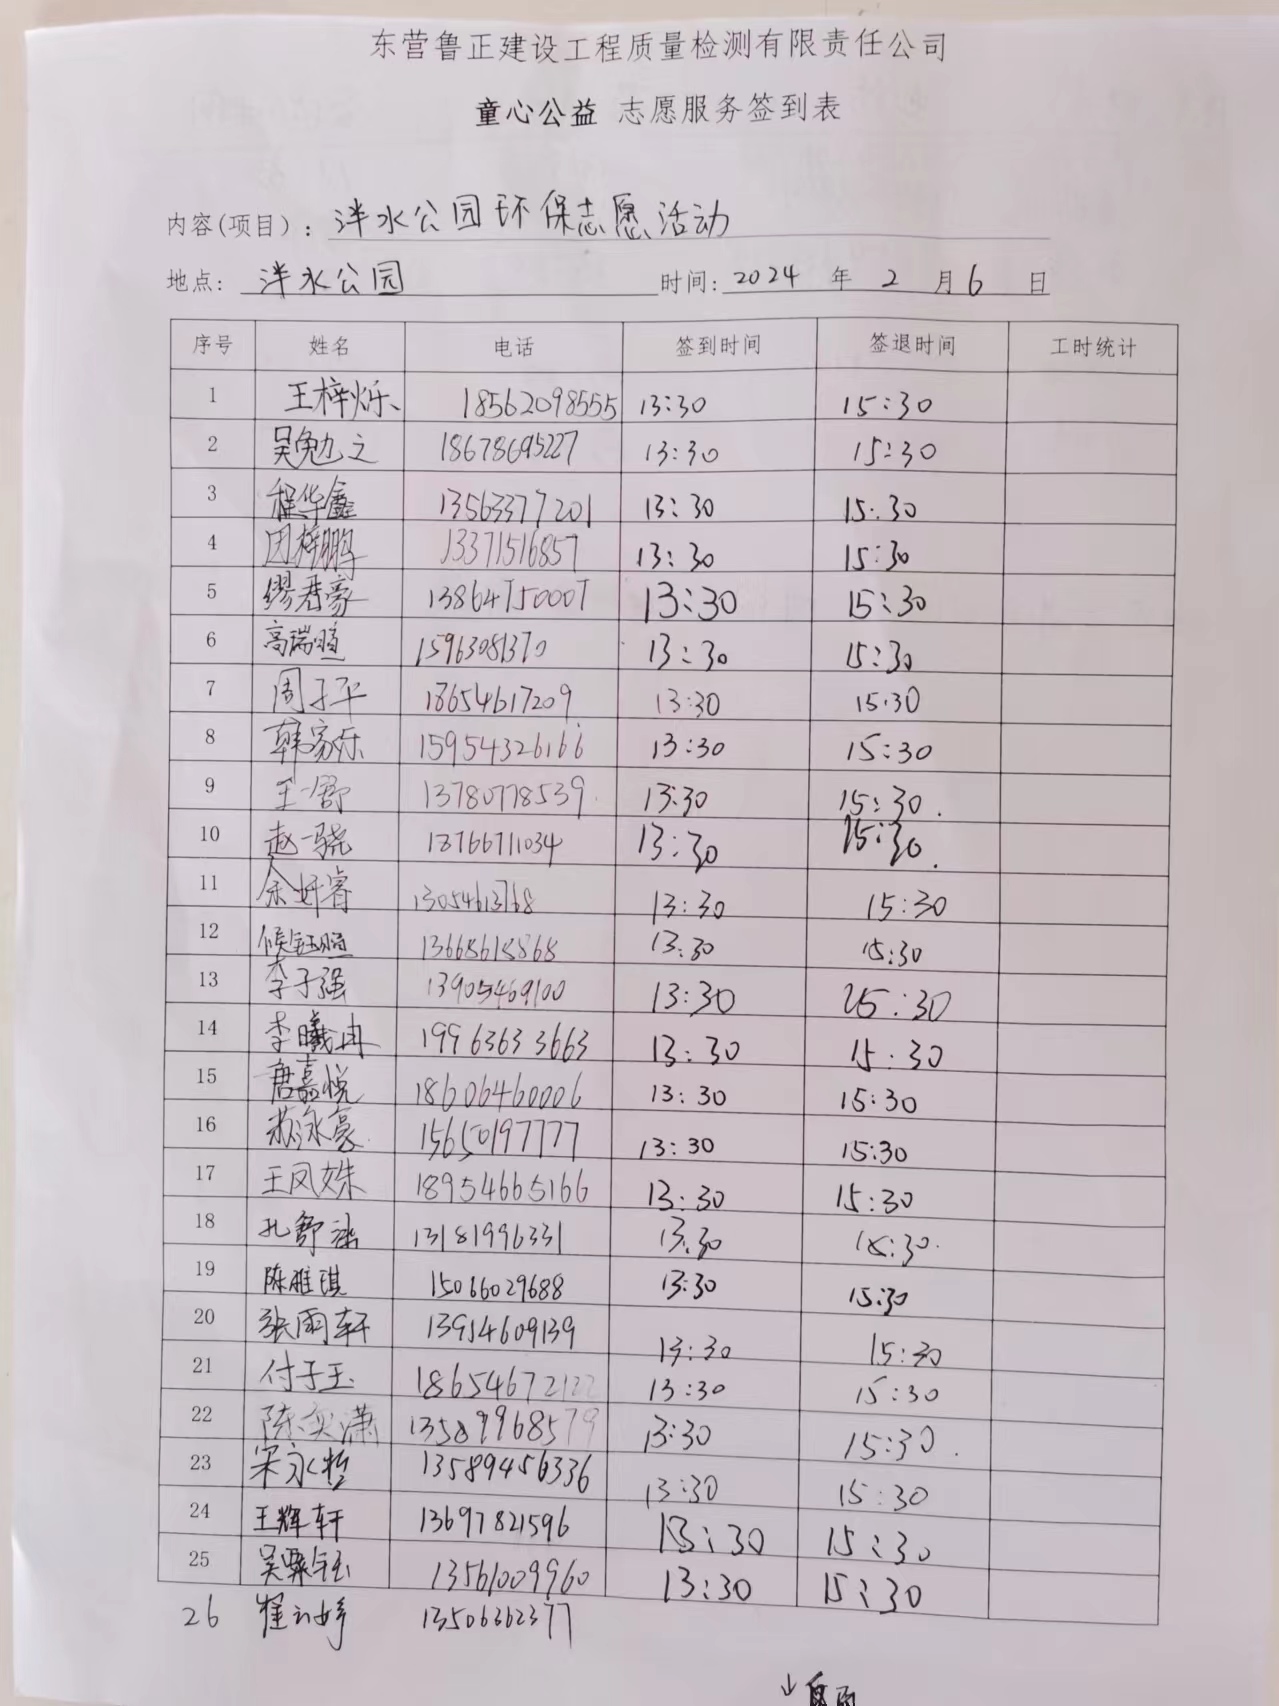 东营鲁正建设工程质量检测有限责任公司
童心公益 志愿服务签到表
内容(项目): 泮水公园环保志愿活动
地点: 泮水公园 时间: 2024 年 2 月 6 日
序号 姓名 电话 签到时间 签退时间 工时统计
1 王梓烁 18562098555 13:30 15:30
2 吴勉之 18678695227 13:30 15:30
3 程华鑫 13563377201 13:30 15:30
4 田梓鹏 13371516857 13:30 15:30
5 缪春豪 13864750007 13:30 15:30
6 高瑞暄 15963081370 13:30 15:30
7 周子平 18654617209 13:30 15:30
8 韩家乐 15954326166 13:30 15:30
9 王一舒 13780778539 13:30 15:30
10 赵一骁 18766711034 13:30 15:30
11 余妍睿 13054613768 13:30 15:30
12 候钰暄 13668618868 13:30 15:30
13 李子强 13905469100 13:30 15:30
14 李曦冉 19963633663 13:30 15:30
15 唐嘉悦 18606460006 13:30 15:30
16 苏泳豪 15650197777 13:30 15:30
17 王凤姝 18954665166 13:30 15:30
18 孔舒 13181996331 13:30 15:30
19 陈雅琪 15066029688 13:30 15:30
20 张雨轩 13914609139 13:30 15:30
21 付子玉 18654672122 13:30 15:30
22 陈奕潇 13589968579 13:30 15:30
23 宋永哲 13589456336 13:30 15:30
24 王辉轩 13697821596 13:30 15:30
25 吴 13561009960 13:30 15:30
26 崔 婷 13506362377
↓背面